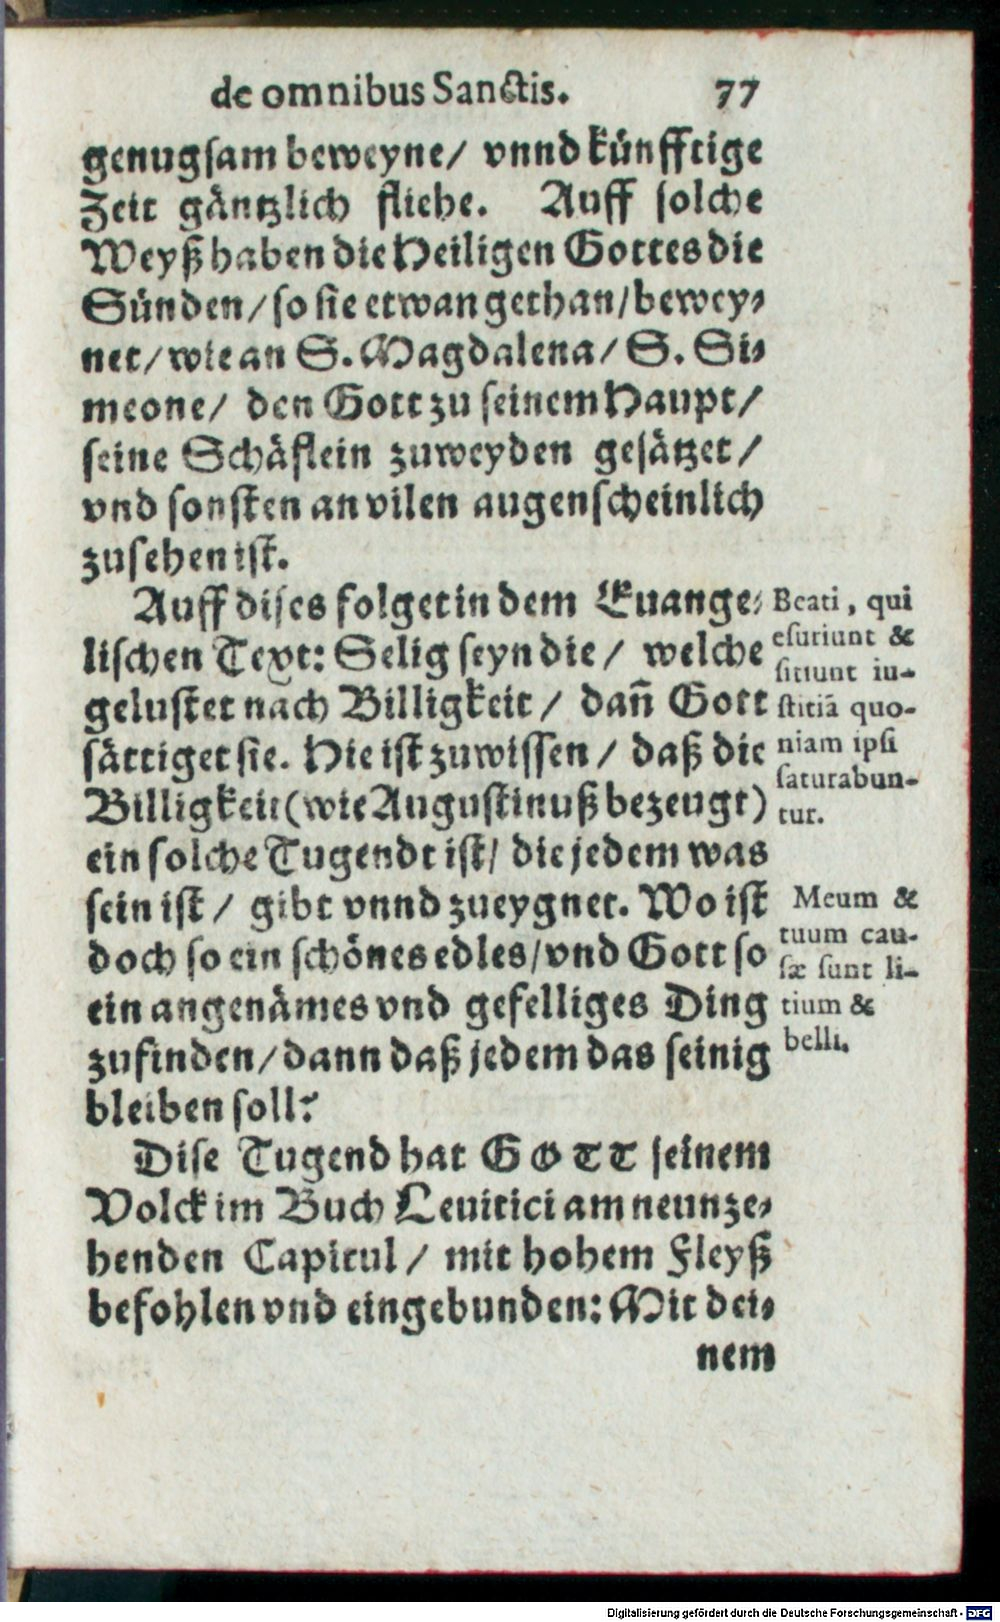 de omnibus Sanctis. 77
genugsam beweyne/ vnnd künfftige
Zeit gäntzlich fliehe. Auff solche
Weyß haben die Heiligen Gottes die
Sünden/ so sie etwan gethan/ bewey⸗
net/ wie an S. Magdalena/ S. Si⸗
meone/ den Gott zu seinem Haupt/
seine Schäflein zuweyden gesätzet/
vnd sonsten an vilen augenscheinlich
zusehen ist.
Auff dises folget in dem Euange⸗
lischen Text: Selig seyn die/ welche
gelustet nach Billigkeit/ dañ Gott
sättiget sie. Hie ist zuwissen/ daß die
Billigkeit (wie Augustinuß bezeugt)
ein solche Tugendt ist/ die jedem was
sein ist/ gibt vnnd zueygnet. Wo ist
doch so ein schönes edles/ vnd Gott so
ein angenämes vnd gefelliges Ding
zufinden/ dann daß jedem das seinig
bleiben soll?
Dise Tugend hat GOTT seinem
Volck im Buch Leuitici am neunze⸗
henden Capitul/ mit hohem Fleyß
befohlen vnd eingebunden: Mit dei⸗
nem
Beati, qui
esuriunt &
sitiunt iu-
stitiā quo-
niam ipsi
saturabun-
tur.
Meum &
tuum cau-
sæ sunt li-
tium &
belli.
Digitalisierung gefördert durch die Deutsche Forschungsgemeinschaft - DFG